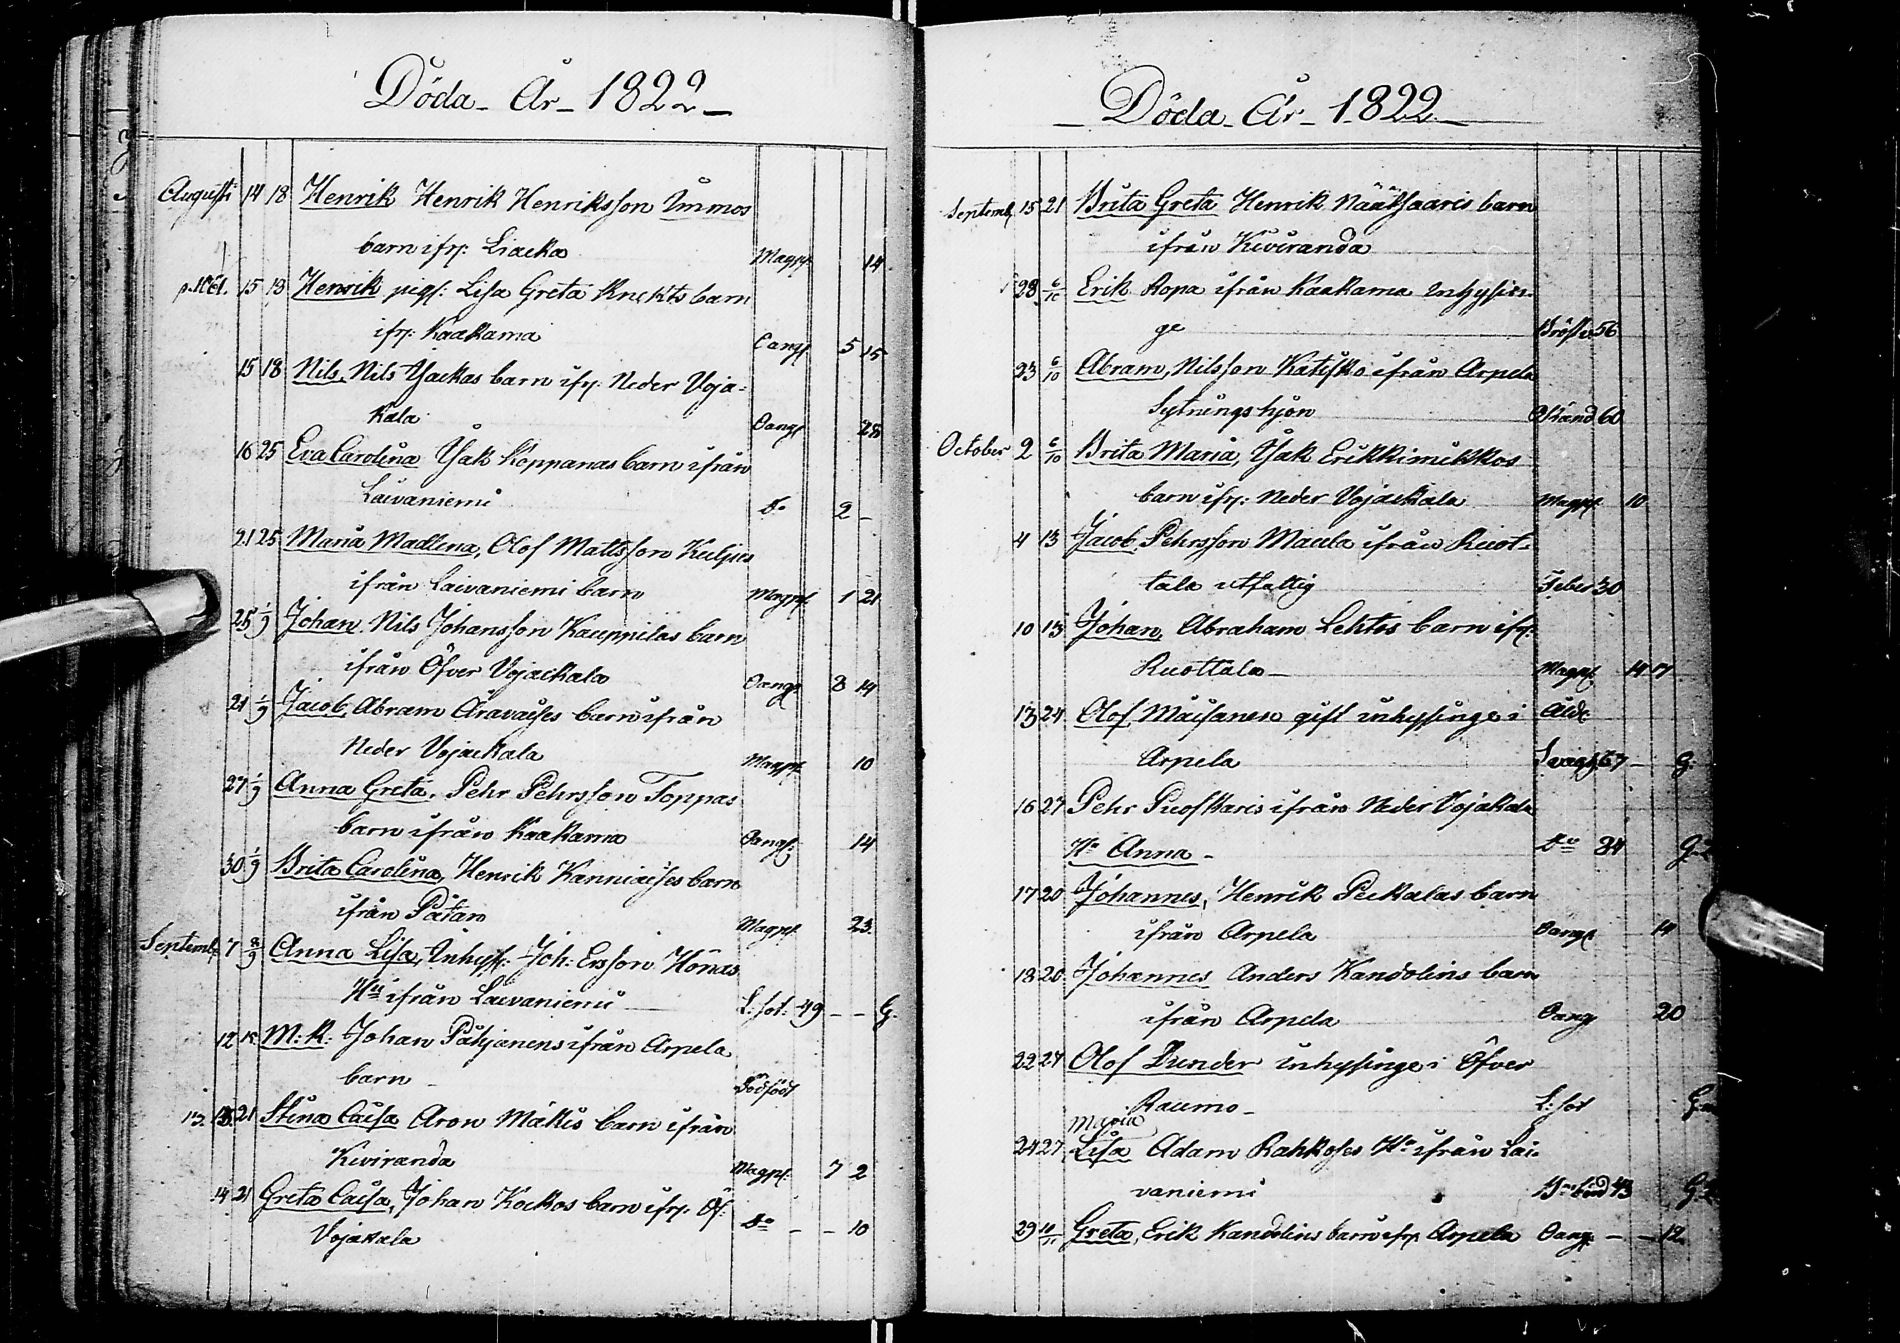 Döda - År - 1822 -
Augusti 14 18 Henrik Henrik Henriksson Simmos
barn ifr: Liacka Magpl: 14
p.1061. 15 18 Henrik pigs: Lisa Greta Knekts barn
ifr: Kaakama Oangf 5 15
15 18 Nils, Nils Yackas barn ifr: Neder Voja-
kala Oangf 28
16 25 Eva Carolina Isak Koppanas barn ifrån
Laivaniemi Do 2 -
21 25 Maria Madlena, Olof Mattsson
ifrån Laivaniemi barn Magpl. 1 21
25 1/9 Johan Nils Johansson Kauppilas barn
ifrån Öfver Vojackala Oangf 8 14
21 1/9 Jacob, Abram barn ifrån
Neder Vojackala Magpl. 10
27 1/9 Anna Greta, Pehr Pehrsson Toppas
barn ifrån Kaakama Oangf: 14
30 1/9 Brita Carolina, Henrik barn
ifrån Magpl. 23.
Septemb: 7 8/9 Anna Lisa, Inhys: Joh: Ersson
Hu ifrån Laivaniemi L: sot: 49 - - G.
12 15 M: K: Johan ifrån Arpela
barn - Dödfödt
13. 21 Stina Caisa Aron Mäkis barn ifrån
Kiviranda Magpl: 7 2
14 21 Greta Caisa, Johan Kockos barn ifr: Öf:
Vojakala Do - - 10
- Döda - År - 1822 -
Septemb: 15 21 Brita Greta Henrik Nääksaaris barn
ifrån Kiviranda
28 6/10 Erik Ropa ifrån Kaakama Inhysin-
ge Bröstv 56
23 6/10 Abram, Nilsson Katisko ifrån Arpela
Sytningshjon Okänd 60
October 2 6/10 Brita Maria, Isak Erikkimikkos
barn ifr: Neder Vojackala Magpl. 10
4 13 Jacob Pehrsson Maula ifrån Ruot-
tala utfattig Feber 30
10 13 Johan, Abraham Lehtos barn ifr:
Ruottala - Magpl. 14 17
13 27 Olof Maisanen gift inhysinge i Ålde
Arpela Svagh 67 - G.
16 27 Pehr ifrån Neder Vojakala
Ha Anna - Do 34 G.
17 20 Johannes, Henrik Peckalas barn
ifrån Arpela Oangf 14
18 20 Johannes Anders Kandolins barn
ifrån Arpela Oangf 20
22 27 Olof Dunder inhysinge i Öfver
Raumo - L: sot G.
Maria
24 27 Lisa Adam Rahkoses Ha ifrån Lai-
vaniemi 43 G.
29 10/11 Greta, Erik Kandolins barn ifr: Arpela Oangf - - 12